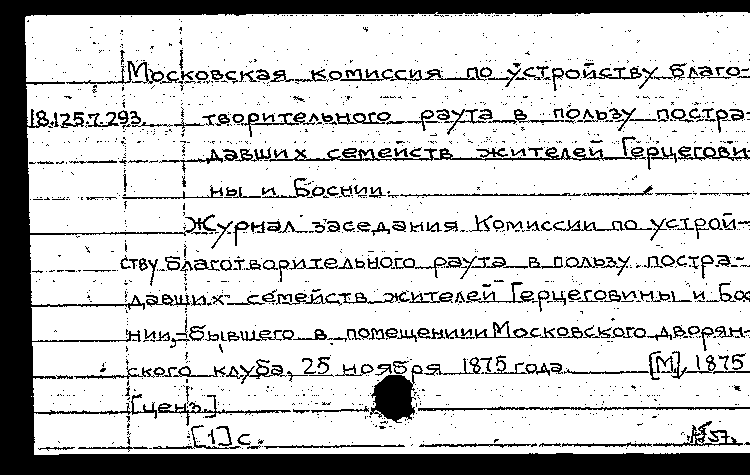 Московская комиссия по устройству благо-
18.125.7.293. творительного раута в пользу постра-
давших семейств жителей Герцегови-
ны и Боснии.
Журнал заседания Комиссии по устрой-
ству благотворительного раута в пользу постра-
давших семейств жителей Герцеговины и Бос
нии,-бывшего в помещениии Московского дворян-
ского клуба, 25 ноября 1875 года. [М], 1875
[ценз.]
[1] с.